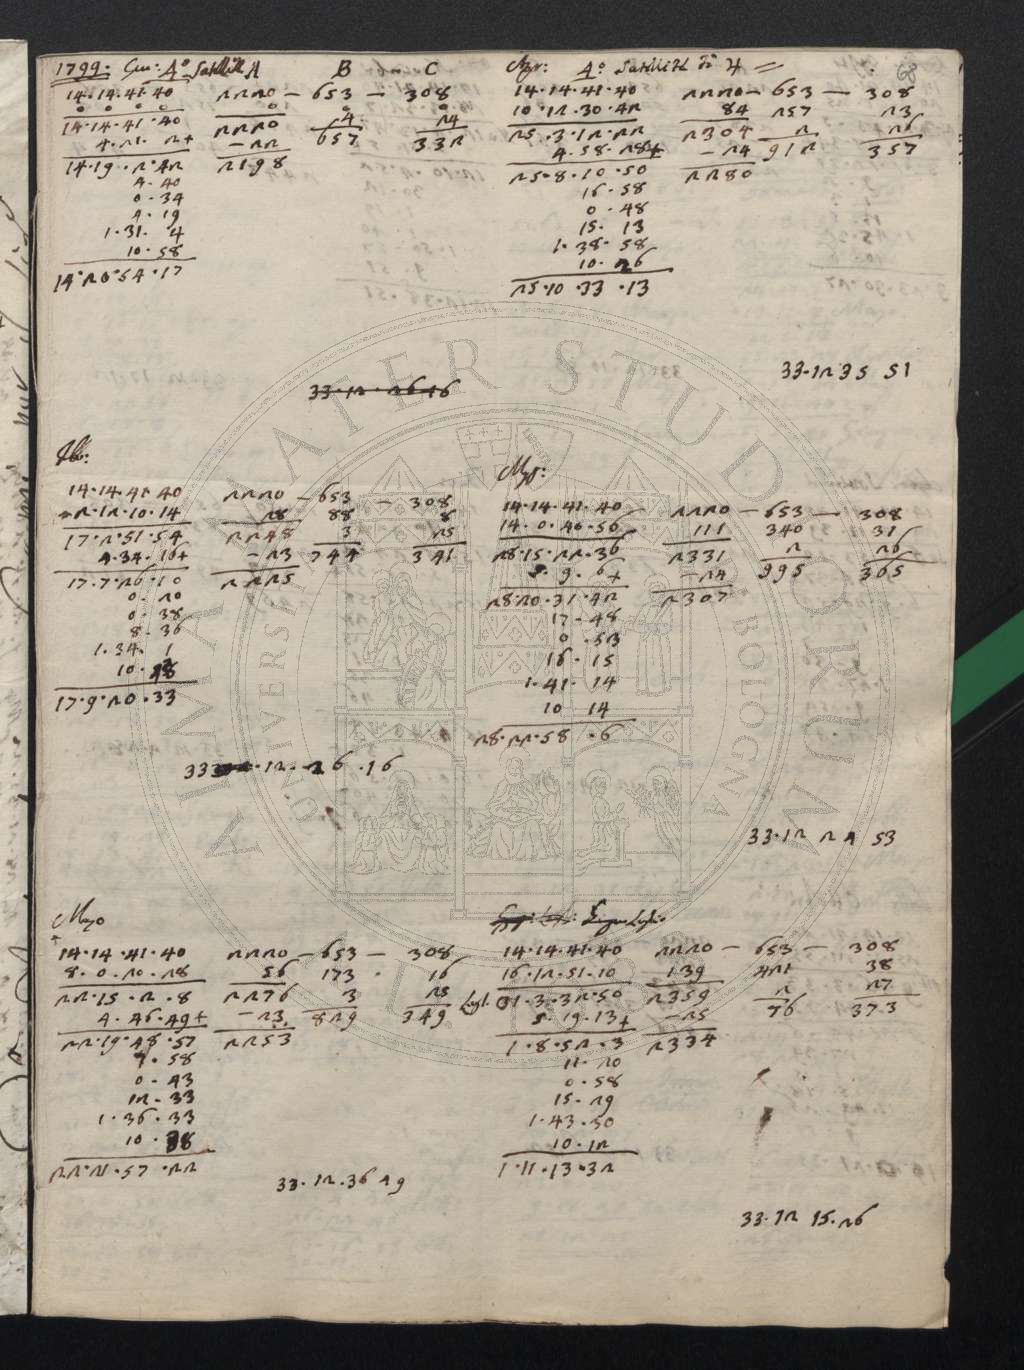 1799. Gen: 4° Satellit A B C
14.14.41.40 2220 — 653 — 308
0 0 0 0 0 0 0
14.14.41.40 2220 4 24
4.21. 2+ — 22 657 332
14.19.2.42 2198
4.40
0.34
4.19
1.31. 4
10.58
14.20.54.17
33.12.26.16
Feb:
14.14.41.40 2220 — 653 — 308
2.12.10.14 28 88 8
17.2.51.54 2248 3 25
4.34.16+ — 23 744 341
17.7.26.10 2225
0.20
0.38
8.36
1.34. 1
10.48
17.9.20.33
33.12.26.16
Marzo
14.14.41.40 2220 — 653 — 308
8.0.20.28 56 173 16
22.15.2.8 2276 3 25
4.46.49+ — 23 829 349
22.19.48.57 2253
7.58
0.43
12.33
1.36.33
10.38
22.21.57.22
33.12.36 49
Apr: 4° Satellit di ♃ 68
14.14.41.40 2220 — 653 — 308
10.12.30.42 84 257 23
25.3.12.22 2304 2 26
4.58.28+ — 24 912 357
25.8.10.50 2280
16.58
0.48
15.13
1.38.58
10.26
25.10.33.13
33.12 35 51
Mag:
14.14.41.40 2220 — 653 — 308
14.0.40.56 111 340 31
28.15.22.36 2331 2 26
5.9.6+ — 24 995 365
28.20.31.42 2307
17.48
0.53
16.15
1.41.14
10 14
28.22.58.6
33.12 24 53
Giugno Luglio
14.14.41.40 2220 — 653 — 308
16.12.51.10 139 421 38
Lugl. 01.3.32.50 2359 2 27
5.19.13+ — 25 76 373
1.8.52.3 2334
11.20
0.58
15.29
1.43.50
10.12
1.11.13.32
33.12 15.26
ALMA MATER STUDIORUM
UNIVERSITÀ DI BOLOGNA